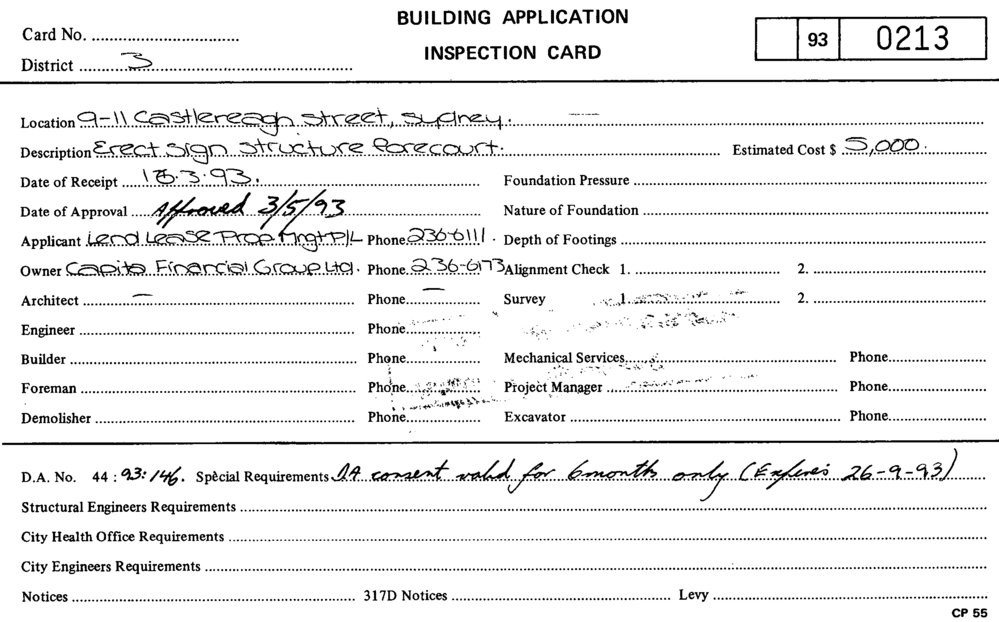 BUILDING APPLICATION
Card No.
93 0213
INSPECTION CARD
District 3
Location 9-11 Castlereagh street, sydney.
Description Erect sign structure forecourt. Estimated Cost $ 5,000.
Date of Receipt .3.93. Foundation Pressure
Date of Approval Approved 3/5/93 Nature of Foundation
Applicant Lend Lease Prop Mngt P/L Phone 236-6111. Depth of Footings
Owner Capita Financial Group Ltd. Phone 236-6173 Alignment Check 1. 2.
Architect — Phone — Survey 1. 2.
Engineer Phone
Builder Phone Mechanical Services Phone
Foreman Phone Project Manager Phone
Demolisher Phone Excavator Phone
D.A. No. 44 : 93:146. Special Requirements DA consent valid for 6 months only (Expires 26-9-93)
Structural Engineers Requirements
City Health Office Requirements
City Engineers Requirements
Notices 317D Notices Levy
CP 55